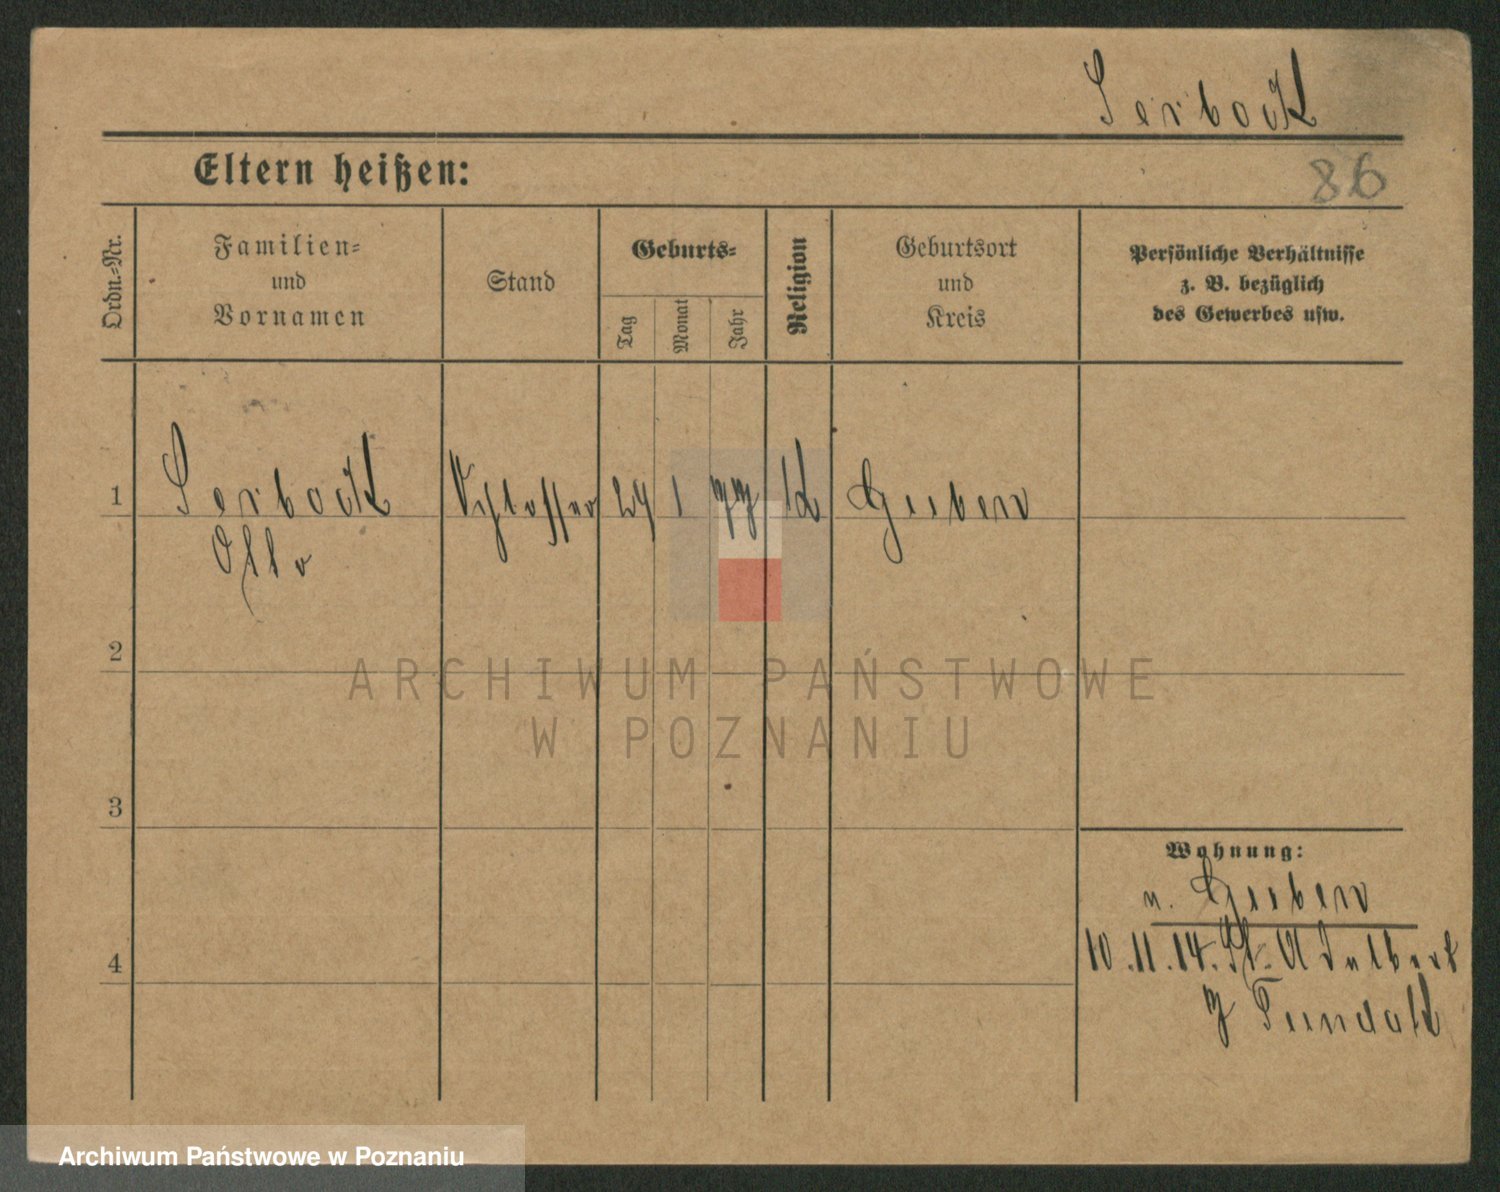 Serbock
86
Eltern heißen:
Ordn.-Nr.
Familien-
und
Vornamen
Stand
Geburts-
Tag
Monat
Jahr
Religion
Geburtsort
und
Kreis
Persönliche Verhältnisse
z. B. bezüglich
des Gewerbes usw.
1 Serbock Schlosser 29 1 77 K Guben
Otto
2
3
4
Wohnung:
n. Guben
10.11.14. St. Adalbert
7
ARCHIWUM PAŃSTWOWE
W POZNANIU
Archiwum Państwowe w Poznaniu